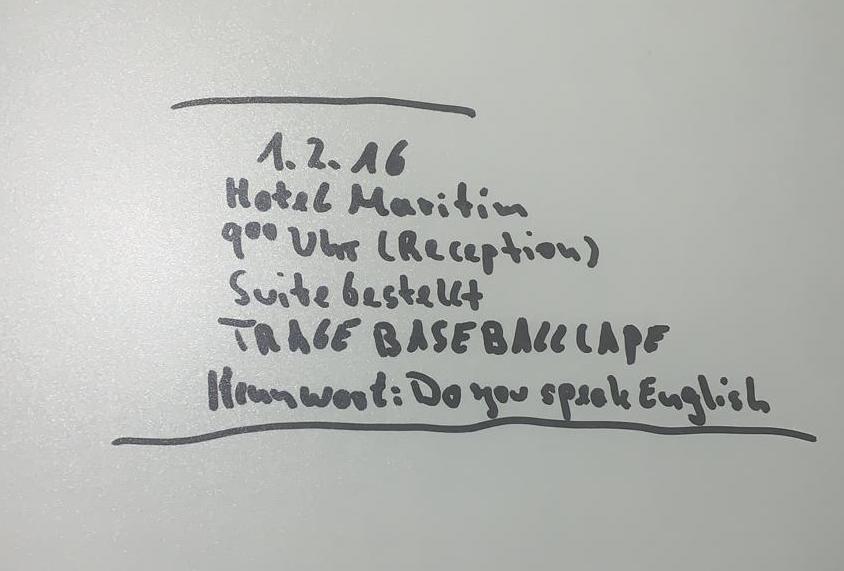 1.2.16
Hotel Maritim
9⁰⁰ Uhr (Reception)
Suite bestellt
TRAGE BASEBALLCAPE
Kennwort: Do you speak English